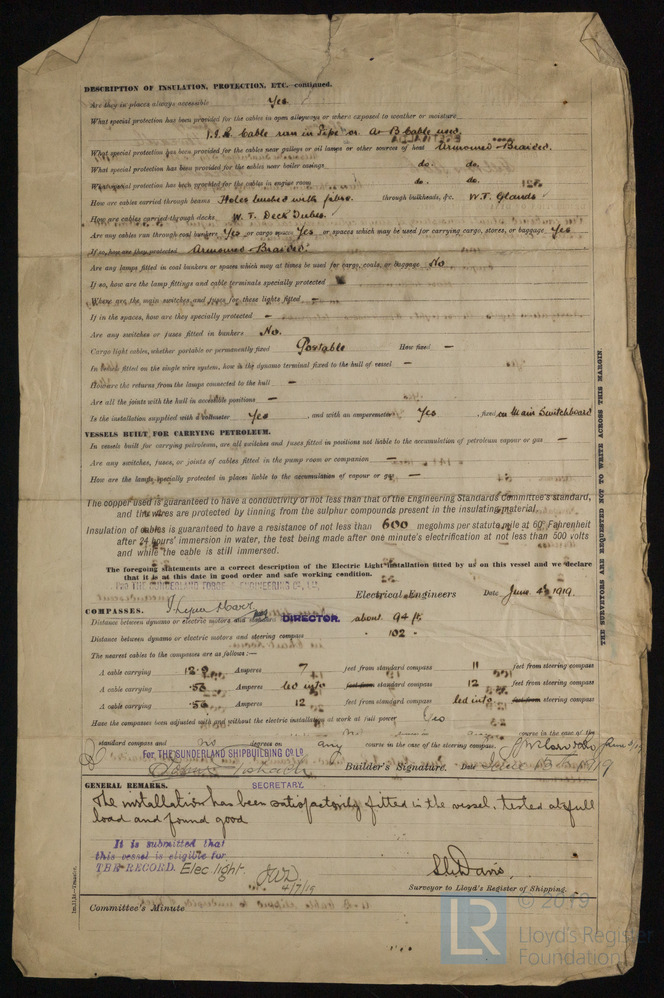 DESCRIPTION OF INSULATION, PROTECTION, ETC. continued.
Are they in places always accessible Yes
What special protection has been provided for the cables in open alleyways or where exposed to weather or moisture
V.I.R. Cable run in Pipe or A & B Cable used
What special protection has been provided for the cables near galleys or oil lamps or other sources of heat Armoured & Braided.
What special protection has been provided for the cables near boiler casings do. do.
What special protection has been provided for the cables in engine room do. do.
How are cables carried through beams Holes bushed with fibre. through bulkheads, &c. W.T. Glands
How are cables carried through decks W. T. Deck Tubes.
Are any cables run through coal bunkers Yes or cargo spaces Yes or spaces which may be used for carrying cargo, stores, or baggage Yes
If so, how are they protected Armoured & Braided.
Are any lamps fitted in coal bunkers or spaces which may at times be used for cargo, coals, or baggage No
If so, how are the lamp fittings and cable terminals specially protected
Where are the main switches and fuses for these lights fitted —
If in the spaces, how are they specially protected —
Are any switches or fuses fitted in bunkers No.
Cargo light cables, whether portable or permanently fixed Portable How fixed —
In vessels fitted on the single wire system, how is the dynamo terminal fixed to the hull of vessel —
How are the returns from the lamps connected to the hull —
Are all the joints with the hull in accessible positions —
Is the installation supplied with a voltmeter Yes , and with an amperemeter Yes , fixed on Main Switchboard
VESSELS BUILT FOR CARRYING PETROLEUM.
In vessels built for carrying petroleum, are all switches and fuses fitted in positions not liable to the accumulation of petroleum vapour or gas —
Are any switches, fuses, or joints of cables fitted in the pump room or companion —
How are the lamps specially protected in places liable to the accumulation of vapour or gas —
The copper used is guaranteed to have a conductivity of not less than that of the Engineering Standards Committee's standard,
and the wires are protected by tinning from the sulphur compounds present in the insulating material.
Insulation of cables is guaranteed to have a resistance of not less than 600 megohms per statute mile at 60° Fahrenheit
after 24 hours' immersion in water, the test being made after one minute's electrification at not less than 500 volts
and while the cable is still immersed.
The foregoing statements are a correct description of the Electric Light installation fitted by us on this vessel and we declare
that it is at this date in good order and safe working condition.
FOR THE SUNDERLAND FORGE & ENGINEERING CO., LD.
Electrical Engineers Date June 4th 1919.
COMPASSES.
DIRECTOR.
Distance between dynamo or electric motors and standard compass about 94 ft
Distance between dynamo or electric motors and steering compass " 102 "
The nearest cables to the compasses are as follows:—
A cable carrying Amperes 7 feet from standard compass 11 feet from steering compass
A cable carrying .56 Amperes led into feet from standard compass 12 feet from steering compass
A cable carrying .56 Amperes 12 feet from standard compass led into feet from steering compass
Have the compasses been adjusted with and without the electric installation at work at full power Yes
course in the case of the
standard compass and degrees on any course in the case of the steering compass.
FOR THE SUNDERLAND SHIPBUILDING CO. LD.
Builder's Signature. Date
SECRETARY.
GENERAL REMARKS.
The installation has been satisfactorily fitted in the vessel, tested at full
load and found good
It is submitted that
this vessel is eligible for
THE RECORD. Elec light.
JWD
4/7/19
Surveyor to Lloyd's Register of Shipping.
Committee's Minute
THE SURVEYORS ARE REQUESTED NOT TO WRITE ACROSS THIS MARGIN.
© 2019
LR
Lloyd's Register
Foundation